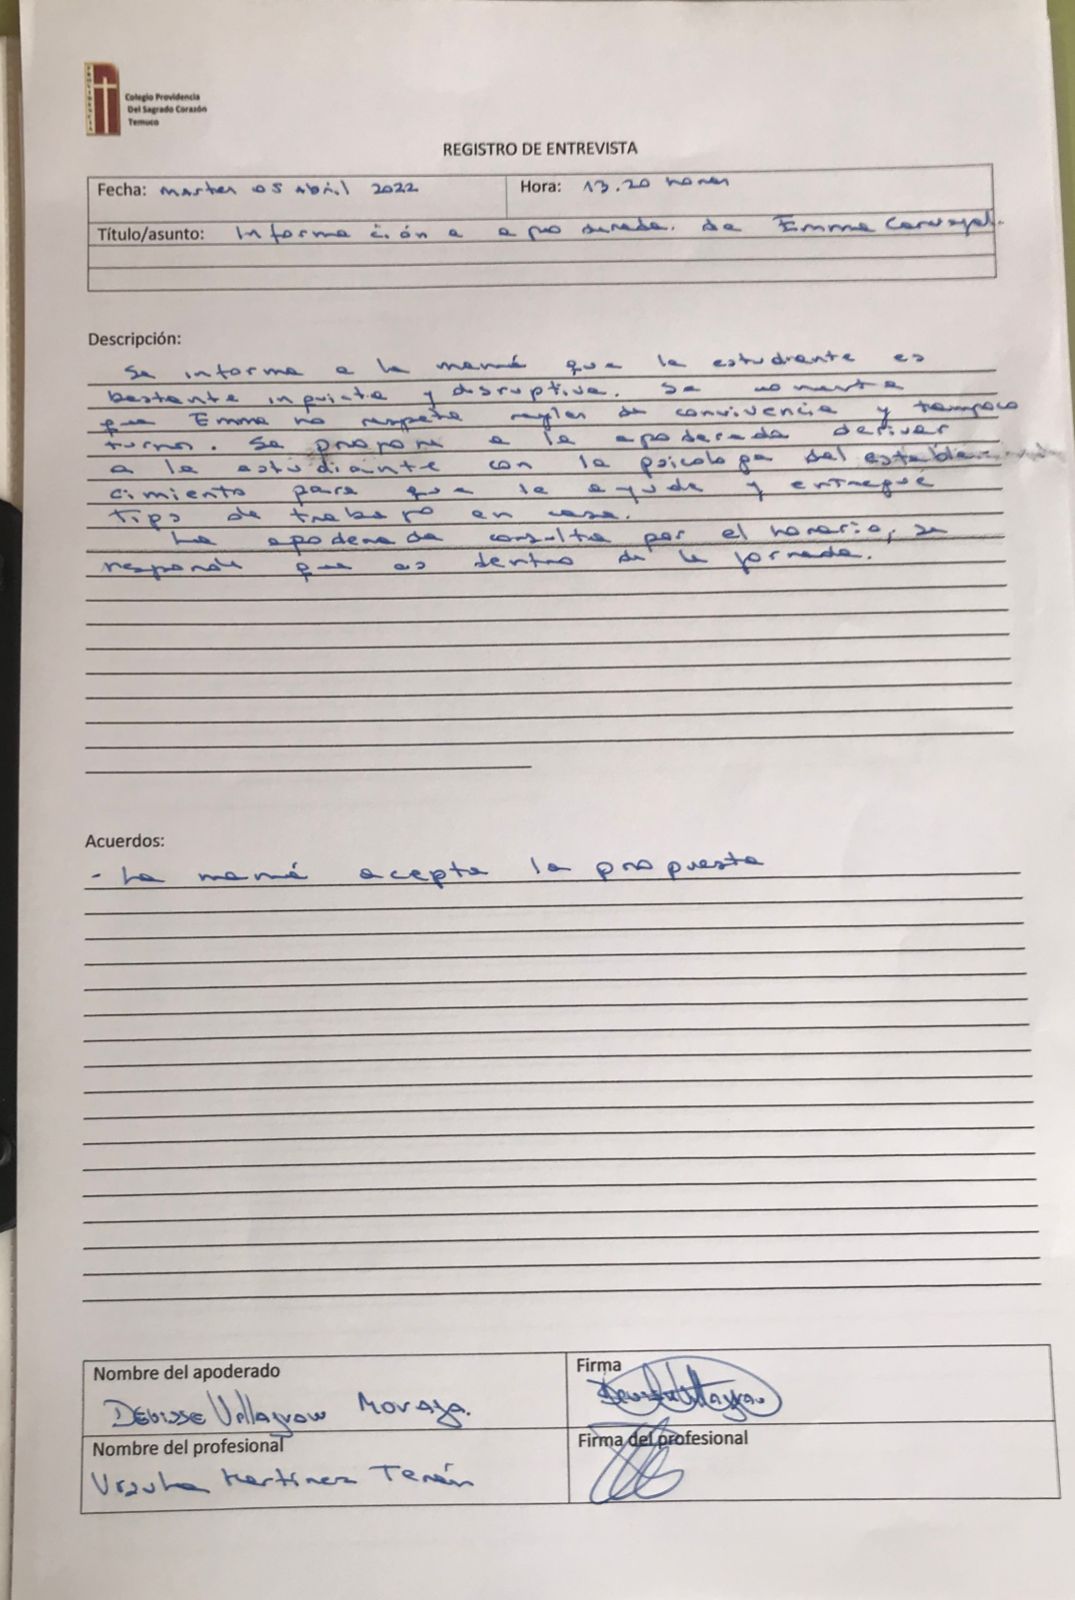 PROVIDENCIA
Colegio Providencia
Del Sagrado Corazón
Temuco
REGISTRO DE ENTREVISTA
Fecha: martes 05 Abril 2022
Hora: 13.20 horas
Título/asunto: Información a apoderada de Emma Carvajal.
Descripción:
Se informa a la mamá que la estudiante es
bastante inquieta y disruptiva. Se comenta
que Emma no respeta reglas de convivencia y tampoco
turnos. Se propone a la apoderada derivar
a la estudiante con la psicologa del estable-
cimiento para que la ayude y entregue
tips de trabajo en casa.
La apoderada consulta por el horario, se
responde que es dentro de la jornada.
Acuerdos:
- La mamá acepta la propuesta
Nombre del apoderado
Villagran Moraga.
Firma
Nombre del profesional
Ursula Martinez Terán
Firma del profesional